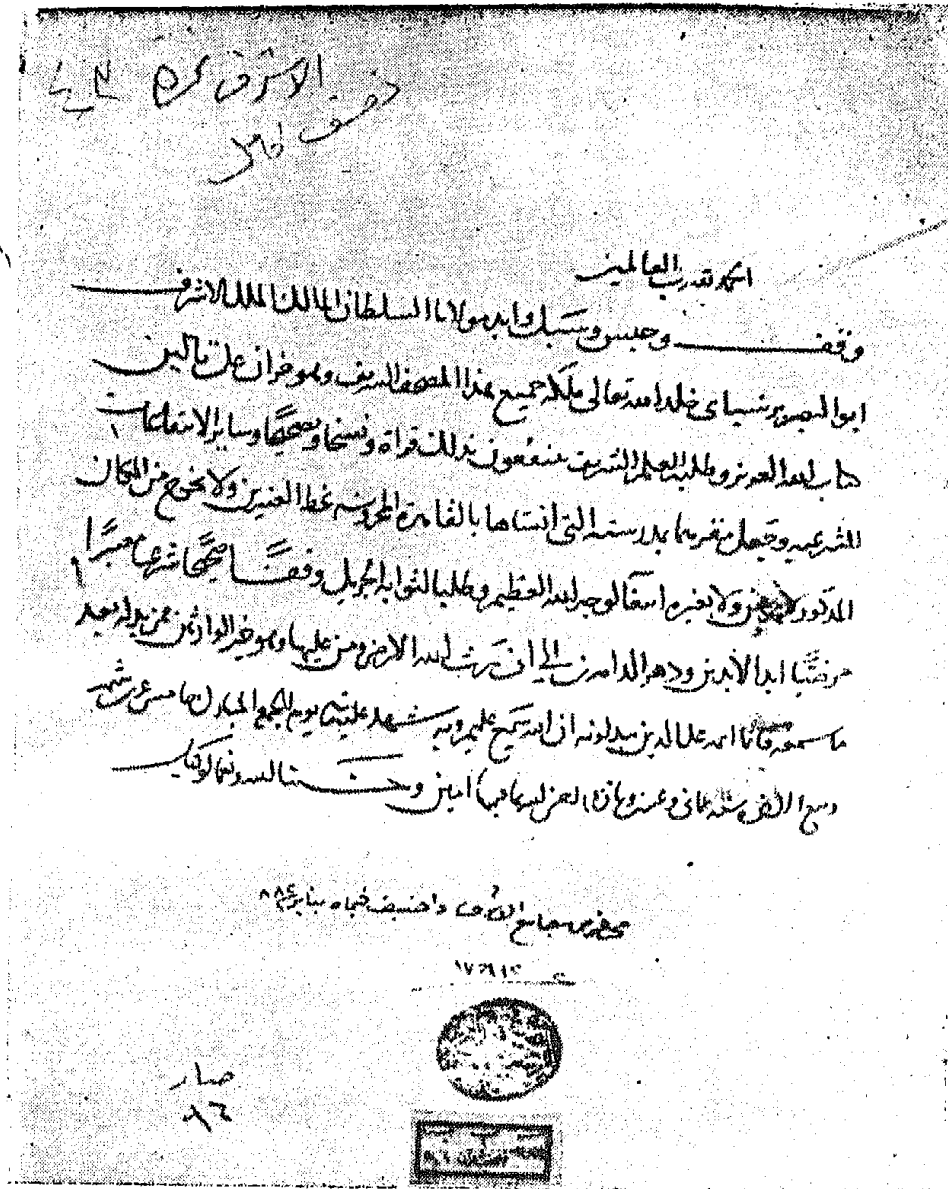 الاشرف
الحمد لله رب العالمين
وقف وحبس وسبل وابد مولانا السلطان المالك الملك الاشرف
ابو النصر برسباى خلد الله تعالى ملكه جميع هذا المصحف الشريف وهو جزان على تالين
كتاب الله العزيز وطلبة العلم الشريف ينتفعون بذلك قراة ونسخا وتصحيحا وساير الانتفاعات
الشرعيه وجعل مقرهما بمدرسته التى انشاها بالقاهرة المحروسه بخط العنبرين ولا يخرج من المكان
المذكور ولا بغيره ابتغا لوجه الله العظيم وطلبا لثوابه الجزيل وقفا صحيحا شرعيا معتبرا
مرضيا ابد الابدين ودهر الداهرين الى ان يرث الله الارض ومن عليها وهو خير الوارثين فمن بدله بعد
ما سمعه فانما اثمه على الذين يبدلونه ان الله سميع عليم وبه شهد عليه يوم الجمع المبارك خامس عشر شهر
ربيع الاخر سنه ثمانى وعشرين امين وحسبنا الله ونعم الوكيل
من جامع واضيف فى يناير ٨٨٤
صار
٩٦